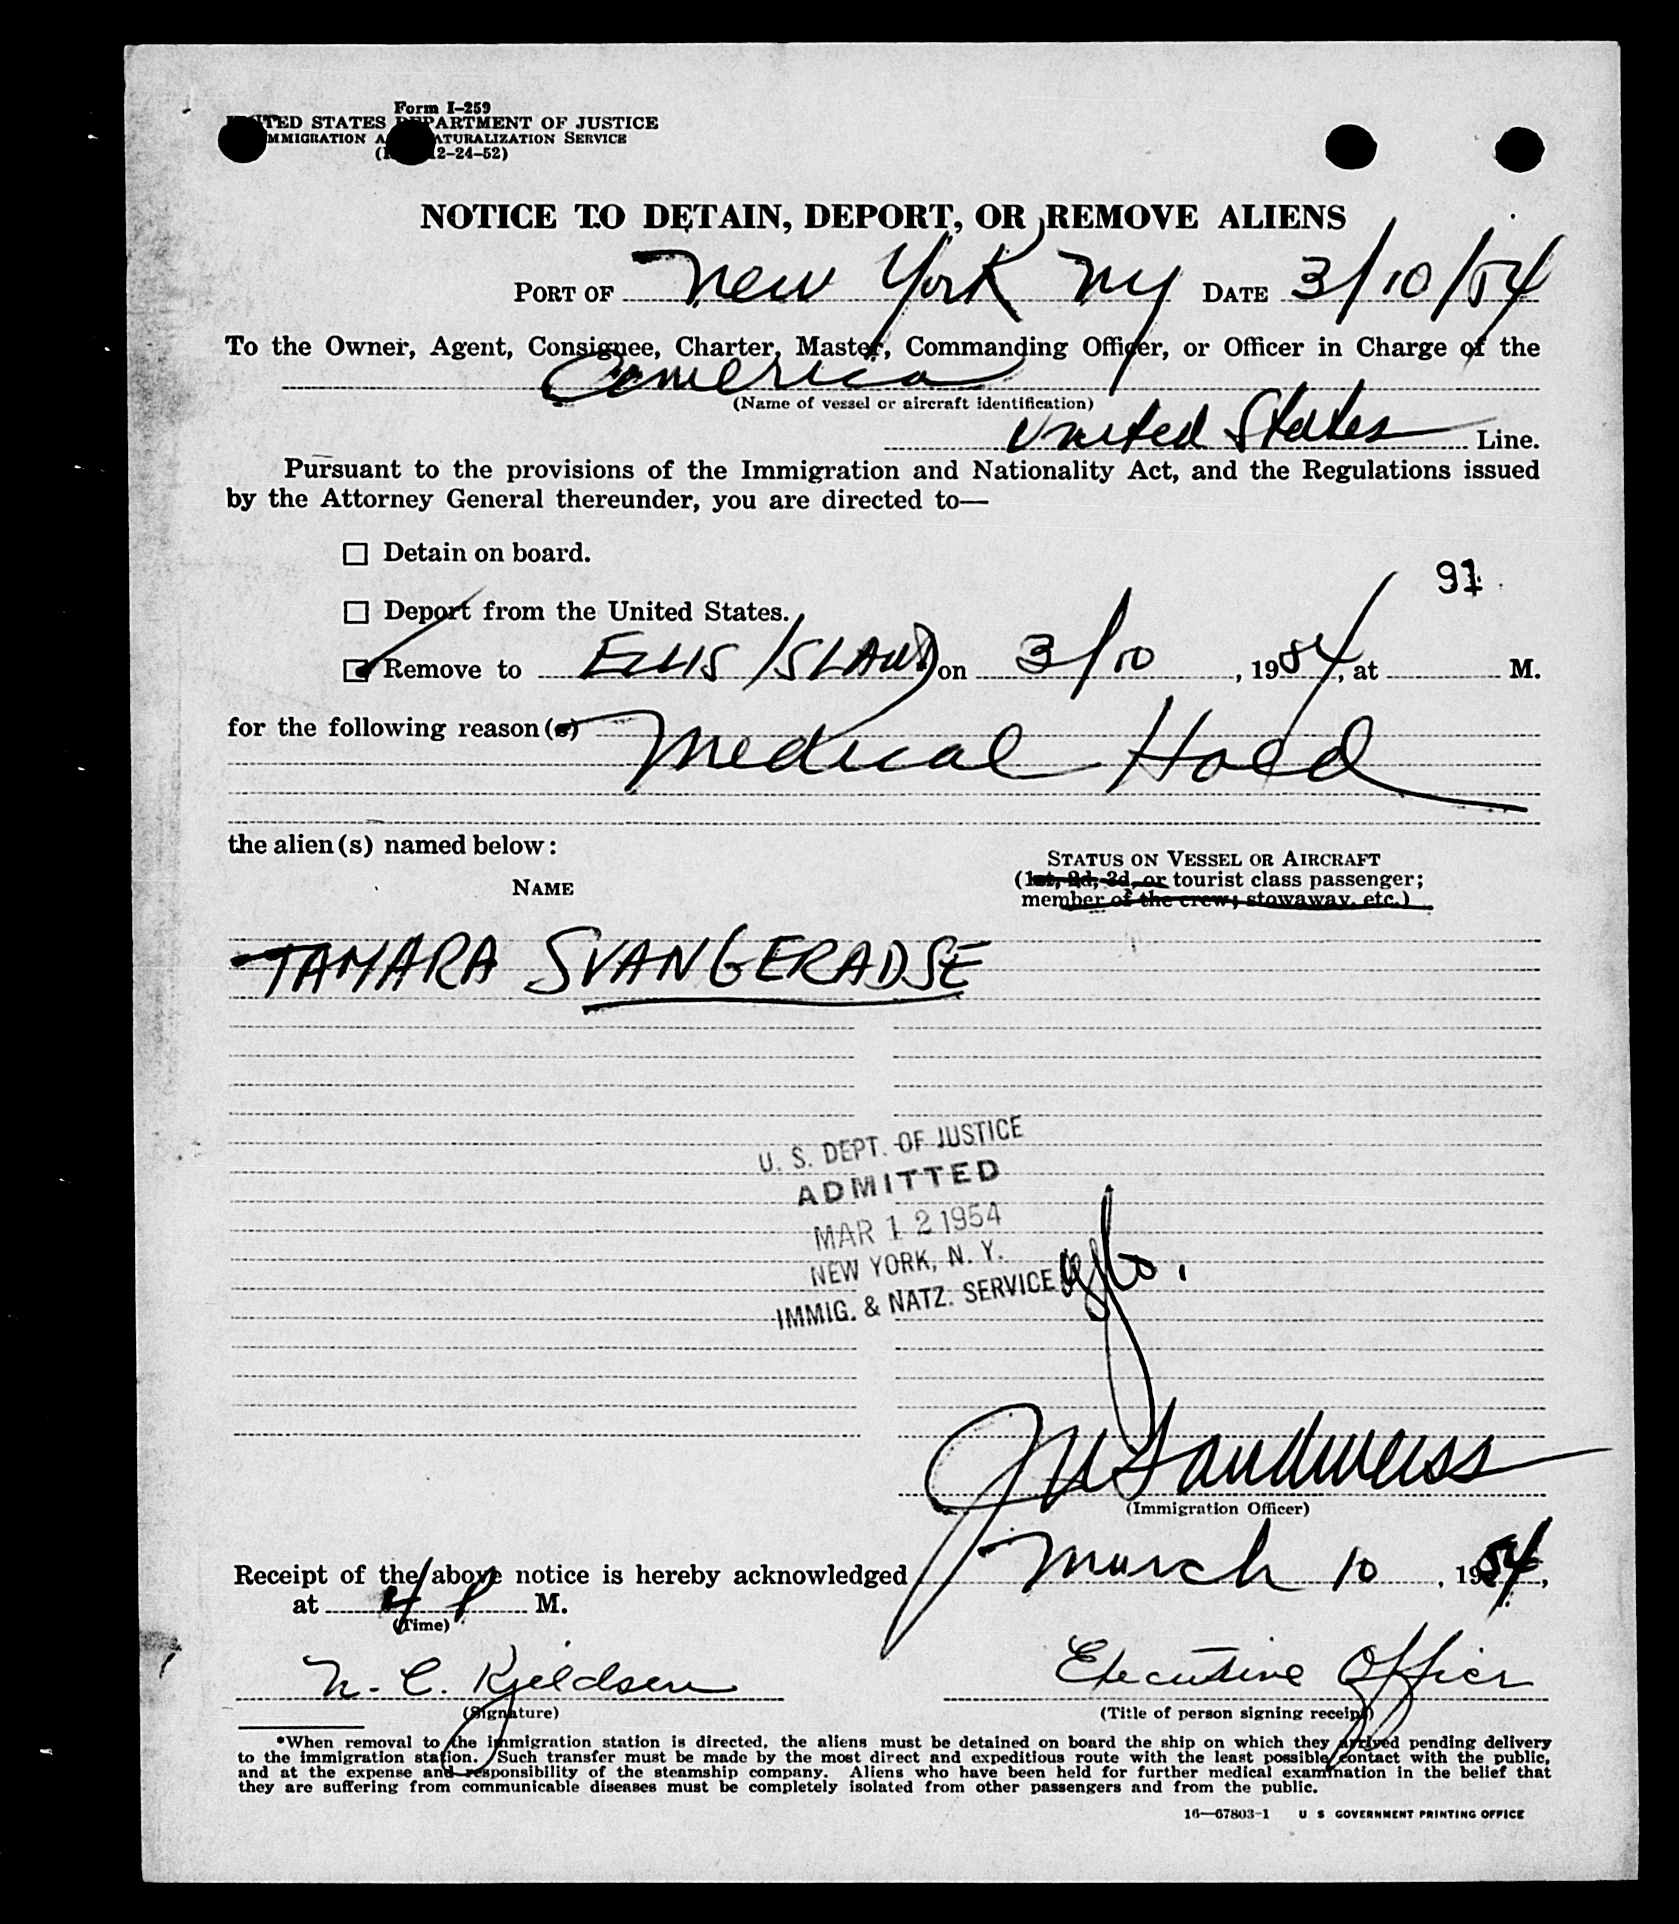 Form I-259
UNITED STATES DEPARTMENT OF JUSTICE
IMMIGRATION AND NATURALIZATION SERVICE
12-24-52)
NOTICE TO DETAIN, DEPORT, OR REMOVE ALIENS
PORT OF New York NY DATE 3/10/54
To the Owner, Agent, Consignee, Charter, Master, Commanding Officer, or Officer in Charge of the
America
(Name of vessel or aircraft identification)
United States Line.
Pursuant to the provisions of the Immigration and Nationality Act, and the Regulations issued
by the Attorney General thereunder, you are directed to—
☐ Detain on board.
91
☐ Deport from the United States.
☑ Remove to ELLIS ISLAND on 3/10, 1954, at M.
for the following reason(s) Medical Hold
the alien(s) named below:
STATUS ON VESSEL OR AIRCRAFT
NAME
(1st, 2d, 3d, or tourist class passenger;
member of the crew; stowaway, etc.)
TAMARA SVANGERADSE
U. S. DEPT. OF JUSTICE
ADMITTED
MAR 12 1954
NEW YORK, N. Y.
IMMIG. & NATZ. SERVICE
(Immigration Officer)
Receipt of the above notice is hereby acknowledged March 10, 1954,
at 4 P M.
(Time)
N. C. Kjeldsen Executive Officer
(Signature) (Title of person signing receipt)
*When removal to the immigration station is directed, the aliens must be detained on board the ship on which they arrived pending delivery
to the immigration station. Such transfer must be made by the most direct and expeditious route with the least possible contact with the public,
and at the expense and responsibility of the steamship company. Aliens who have been held for further medical examination in the belief that
they are suffering from communicable diseases must be completely isolated from other passengers and from the public.
16—67803-1 U S GOVERNMENT PRINTING OFFICE